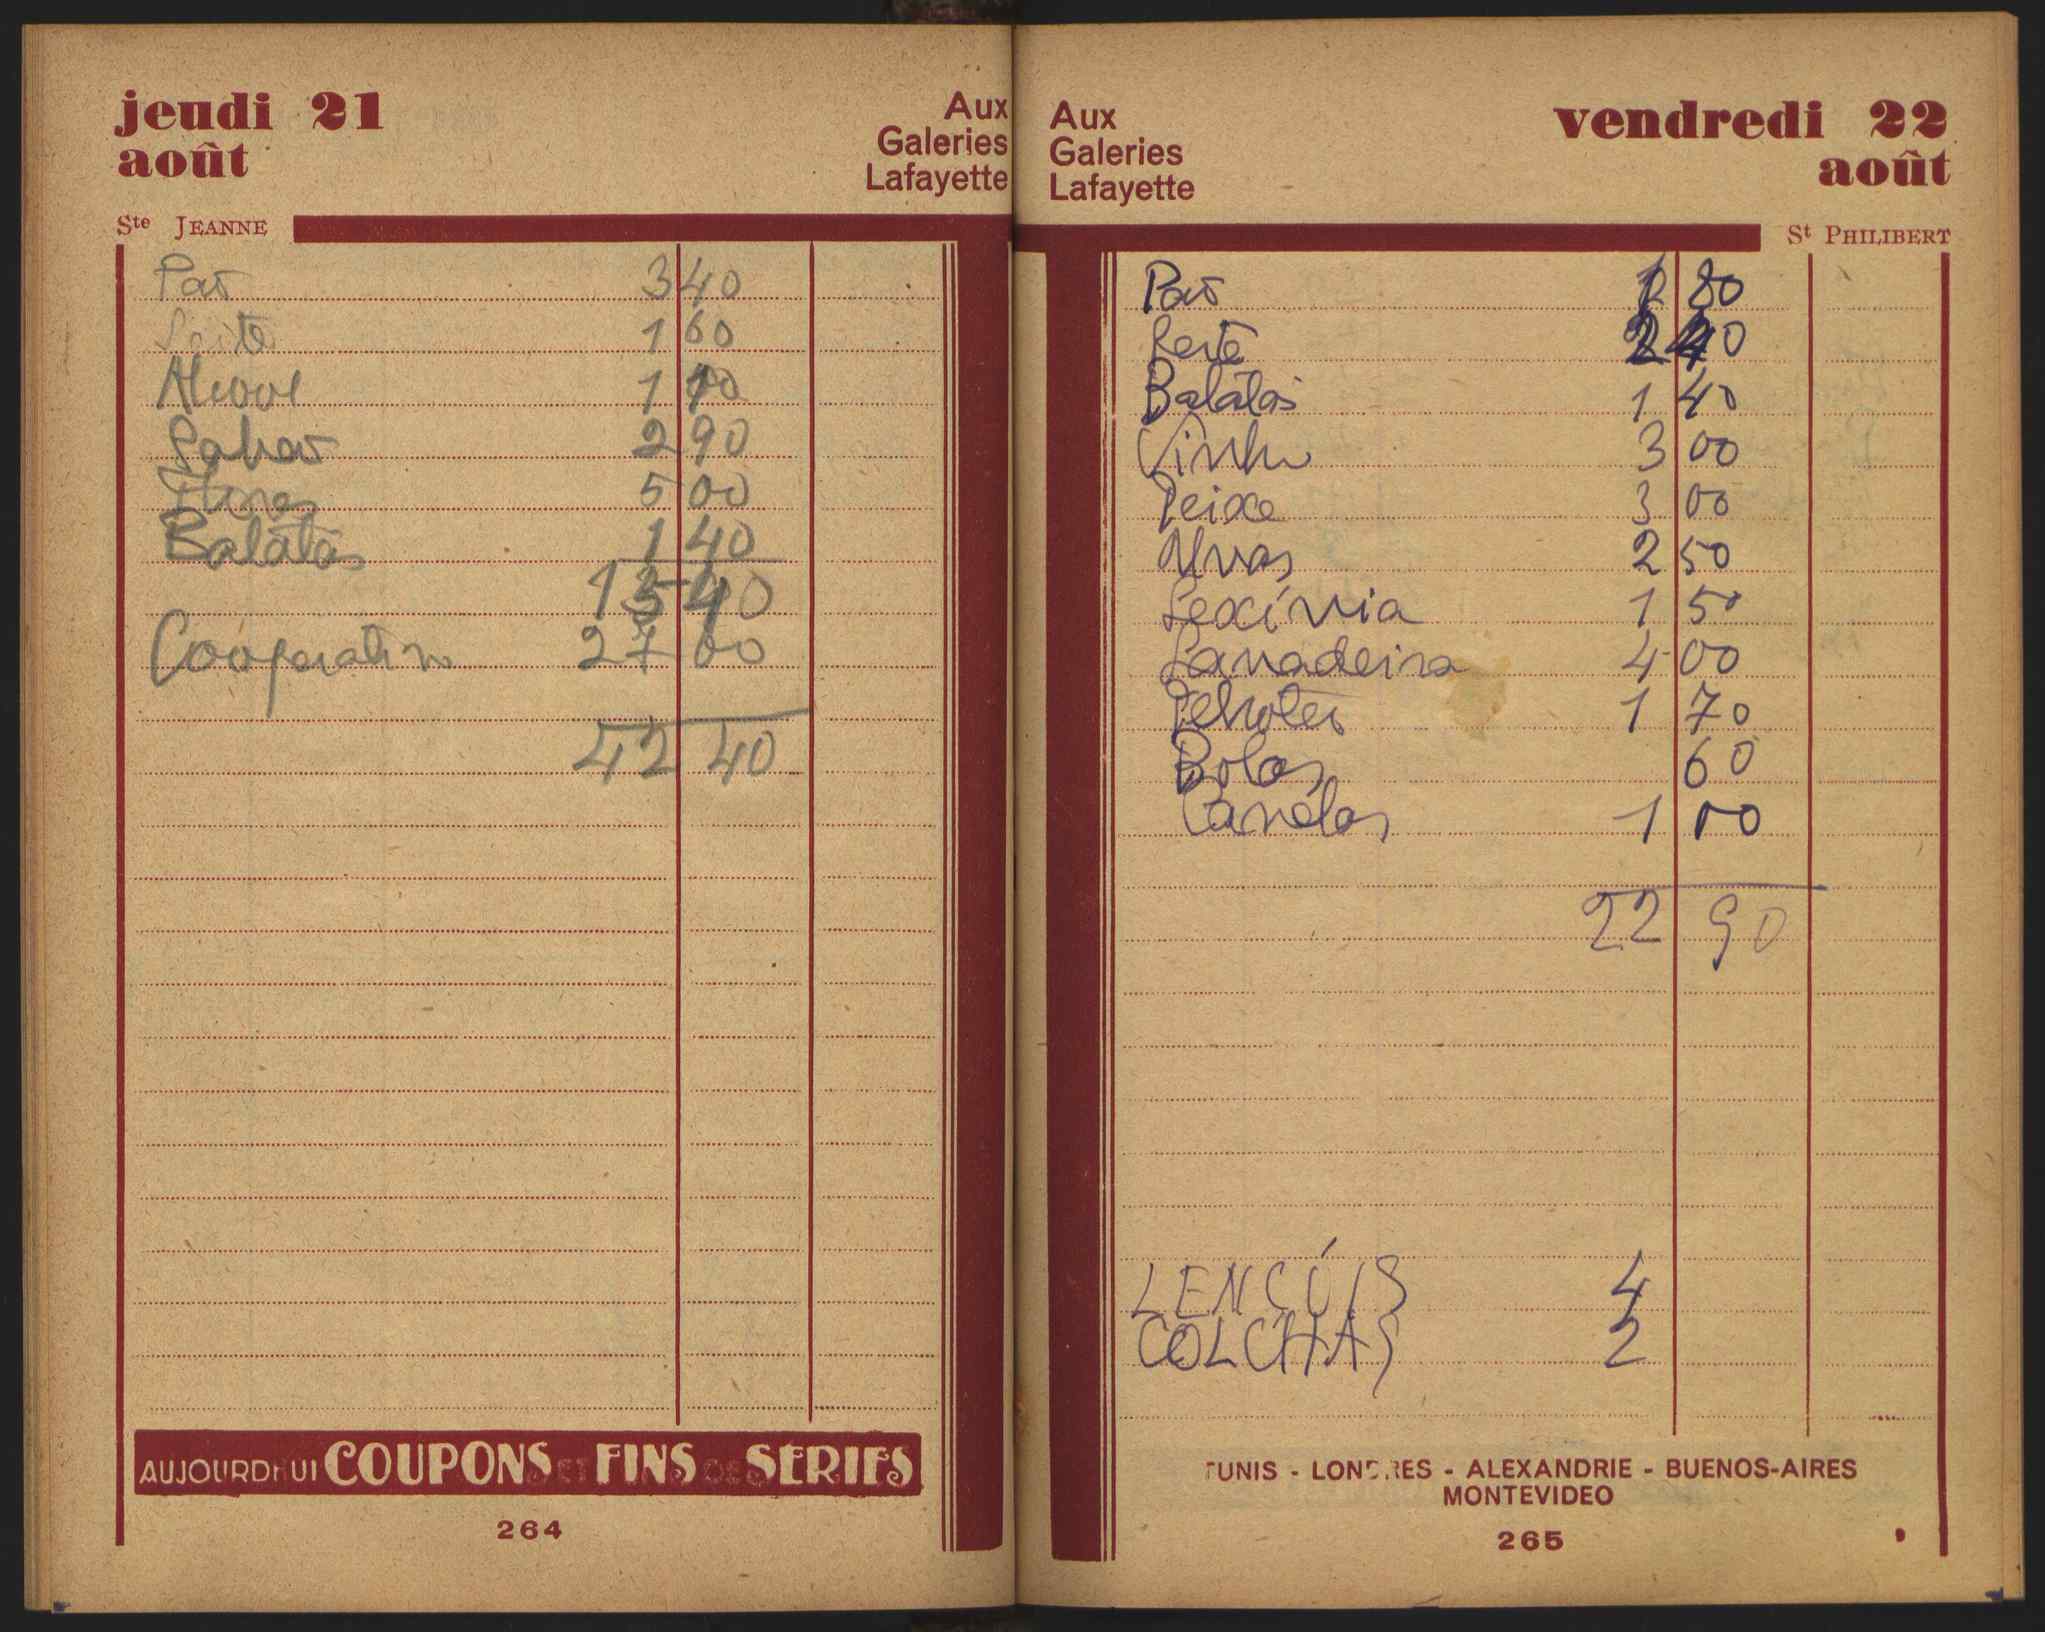 jeudi 21
août
Aux
Galeries
Lafayette
Ste JEANNE
Pao 3 40
Leite 1 60
Alcool 1 10
Sabao 2 90
5 00
Batatas 1 40
15 40
Cooperativa 27 00
42 40
AUJOURD'HUI COUPONS ET FINS DE SERIES
264
Aux
Galeries
Lafayette
vendredi 22
août
St PHILIBERT
Pao 1 80
Leite 2 40
Batatas 1 40
Vinho 3 00
Peixe 3 00
Uvas 2 50
Lexívia 1 50
Lavadeira 4 00
1 70
Bolos 60
Canelas 1 00
22 90
LENÇÓIS 4
COLCHAS 2
TUNIS - LONDRES - ALEXANDRIE - BUENOS-AIRES
MONTEVIDEO
265